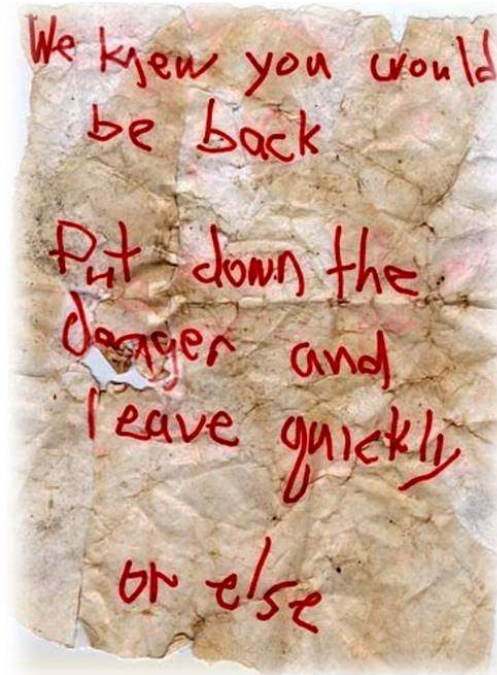 We knew you would
be back
Put down the
danger and
leave quickly
or else